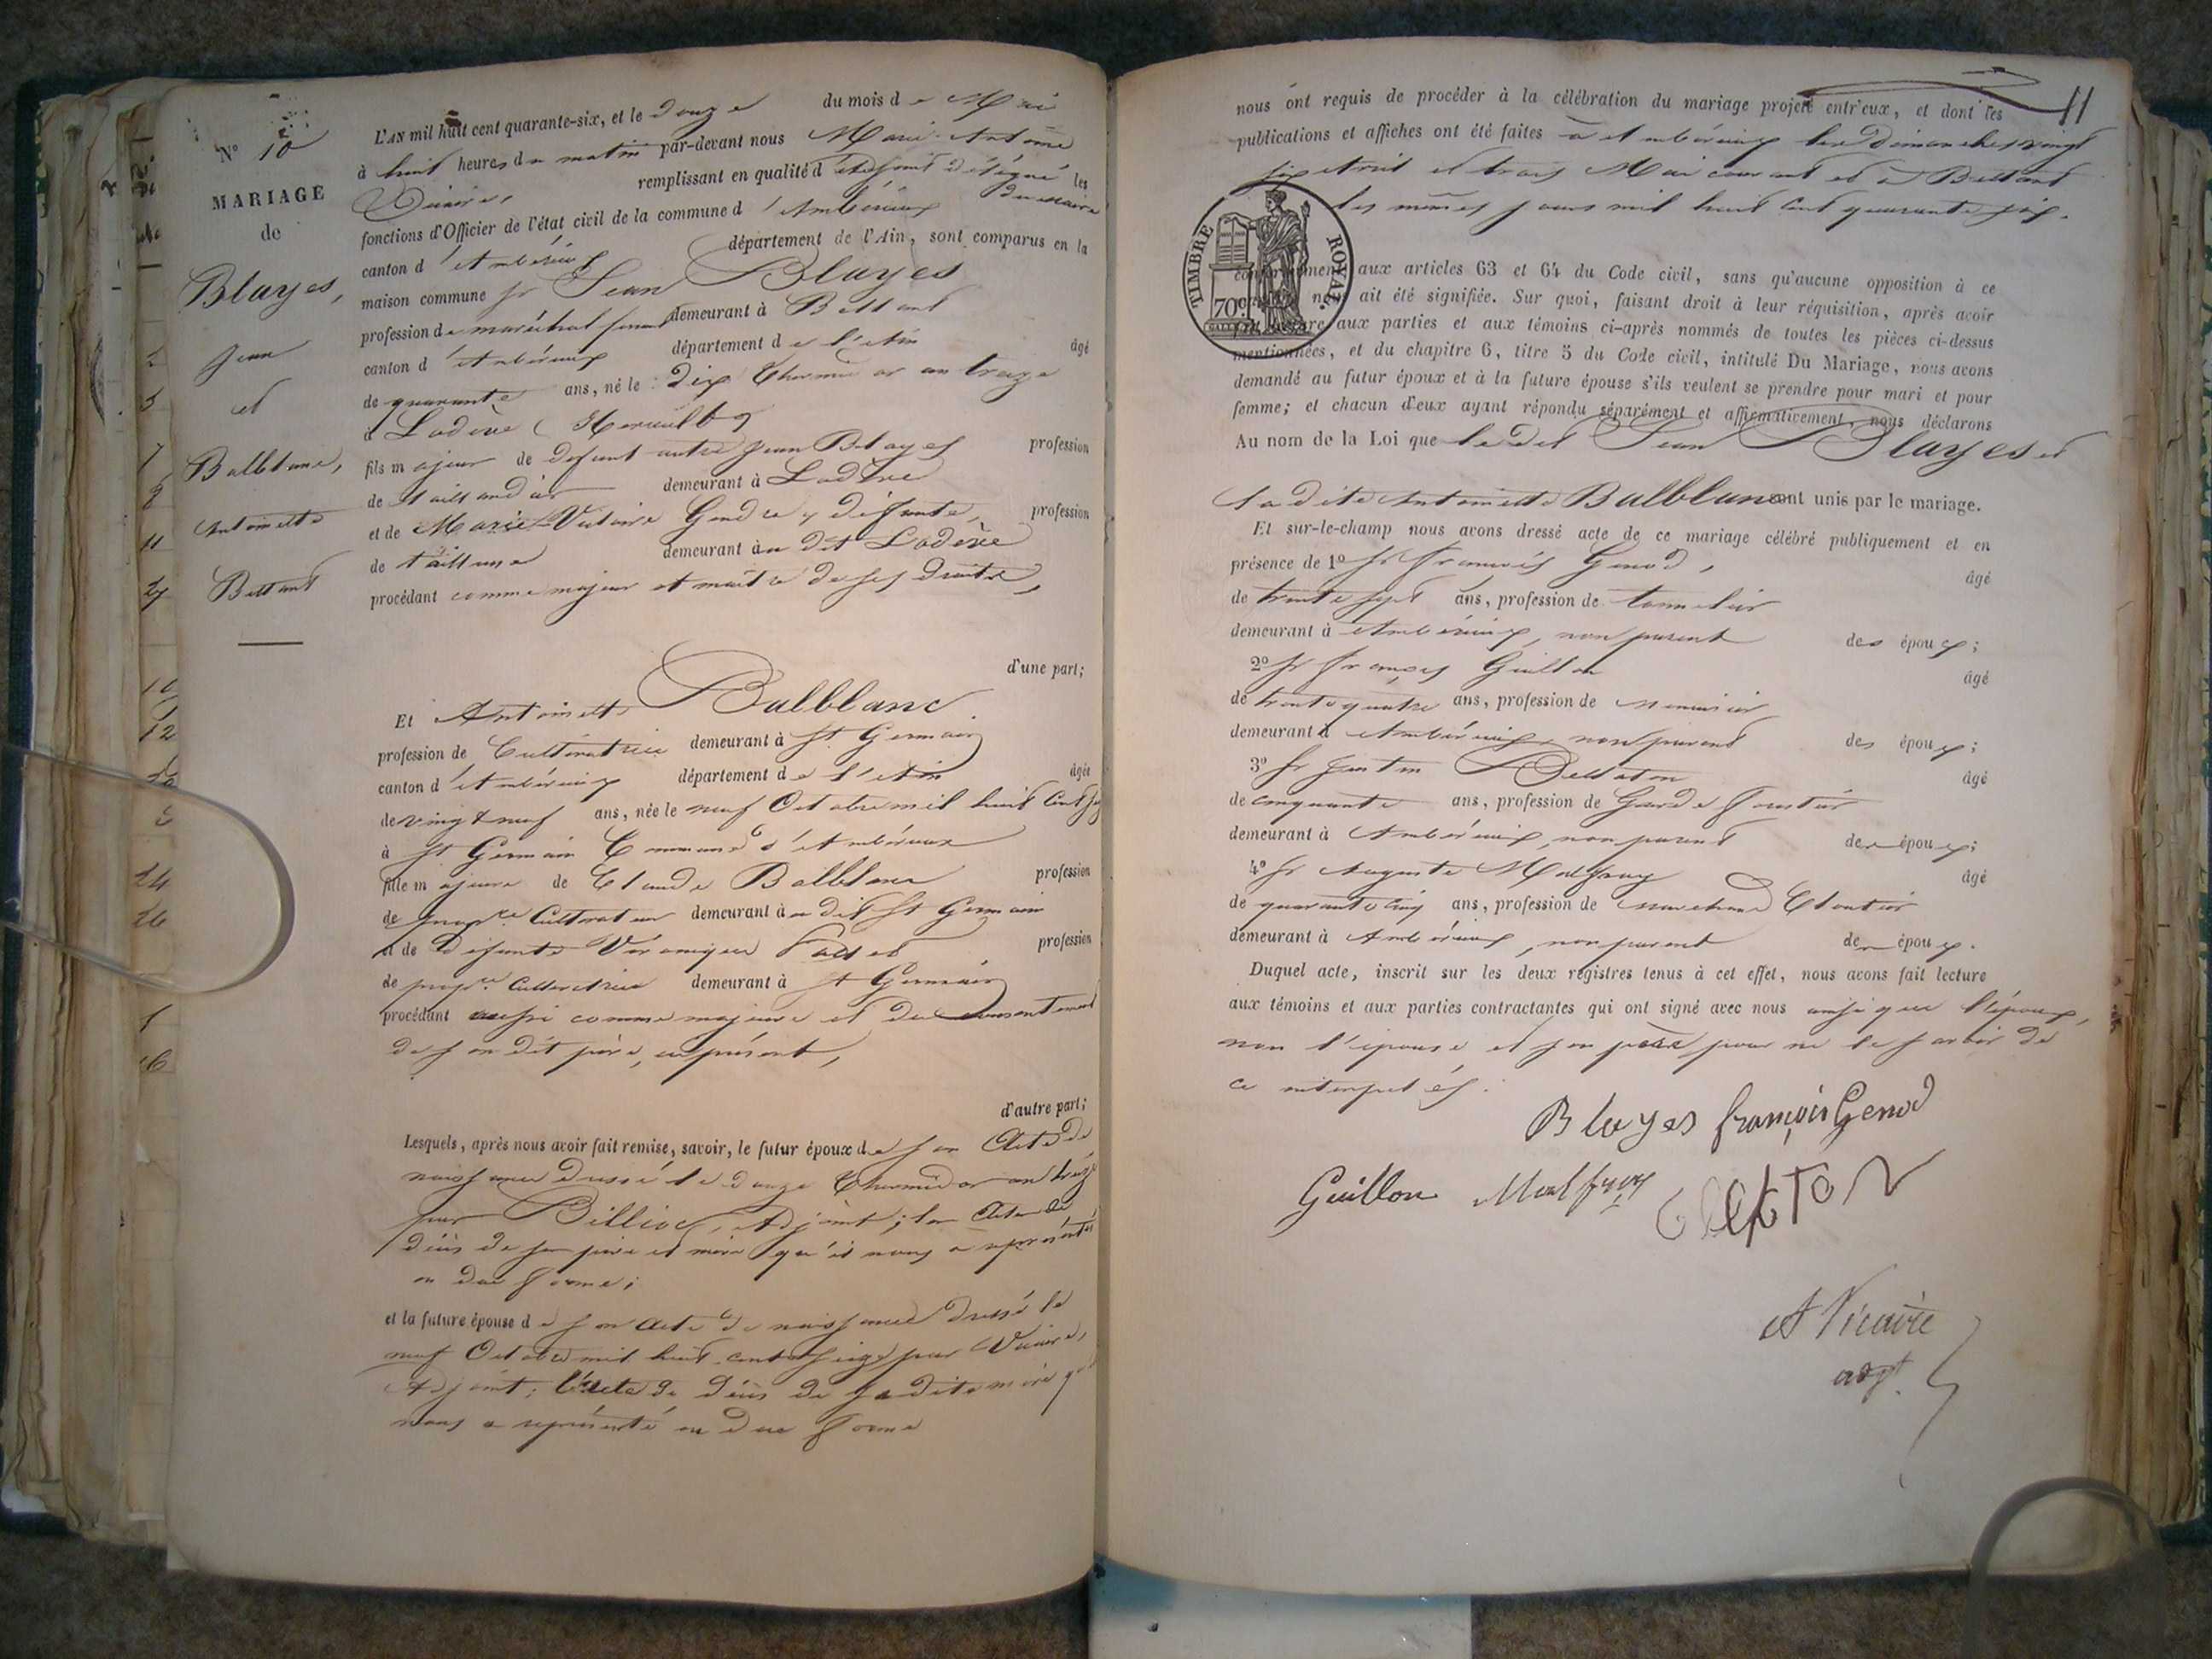 N° 10
MARIAGE
de
Blayes,
Jean
et
Balblanc,
Antoinette
Bettant
L'AN mil huit cent quarante-six, et le Douze du mois de Mai
à huit heures du matin par-devant nous Marie-Antoine
Vicaire, remplissant en qualité d'Adjoint délégué les
du Maire
fonctions d'Officier de l'état civil de la commune d'Ambérieux
canton d'Ambérieux département de l'Ain, sont comparus en la
maison commune Sr Jean Blayes
profession de maréchal ferrant demeurant à Bettant
canton d'Ambérieux département de l'Ain âgé
de quarante ans, né le Dix Thermidor an treize
à Lodève (Herault)
fils majeur de defunt autre Jean Blayes profession
de taillandier demeurant à Lodève
et de Marie-Victoire défunte, profession
de demeurant au dit Lodève
procédant comme majeur et maître de ses droits,
d'une part;
Et Antoinette Balblanc
profession de Cultivatrice demeurant à St Germain
canton d'Ambérieux département de l'Ain âgée
de vingt neuf ans, née le neuf Octobre mil huit cent
à St Germain Commune d'Ambérieux
fille majeure de Claude Balblanc profession
de propre Cultivateur demeurant au dit St Germain
et de defunte Véronique profession
de propre Cultivatrice demeurant à St Germain
procédant aussi comme majeure et du consentement
de son dit père, ici présent,
d'autre part;
Lesquels, après nous avoir fait remise, savoir, le futur époux de son Acte de
naissance Dressé le douze Thermidor an treize
par Billioc, Adjoint; les Actes de
décès de ses père et mère qu'il nous a représentés
en due forme;
et la future épouse de son acte de naissance Dressé le
neuf Octobre mil huit-cent-seize par Vicaire,
Adjoint; l'acte de décès de sa dite mère qu'
nous a représenté en due forme
11
nous ont requis de procéder à la célébration du mariage projeté entr'eux, et dont les
publications et affiches ont été faites à Ambérieux les Dimanches vingt
six et trois Mai courant et à Bettant
les mêmes jours mil huit cent quarante six.
TIMBRE ROYAL
70 c.
conformément aux articles 63 et 64 du Code civil, sans qu'aucune opposition à ce
nous ait été signifiée. Sur quoi, faisant droit à leur réquisition, après avoir
lecture aux parties et aux témoins ci-après nommés de toutes les pièces ci-dessus
mentionnées, et du chapitre 6, titre 5 du Code civil, intitulé Du Mariage, nous avons
demandé au futur époux et à la future épouse s'ils veulent se prendre pour mari et pour
femme; et chacun d'eux ayant répondu séparément et affirmativement, nous déclarons
Au nom de la Loi que le dit Jean Blayes et
la dite Antoinette Balblanc sont unis par le mariage.
Et sur-le-champ nous avons dressé acte de ce mariage célébré publiquement et en
présence de 1° Sr François Genod, âgé
de trente sept ans, profession de tonnelier
demeurant à Ambérieux, non parent des époux;
2° Sr François Guillon âgé
de trente quatre ans, profession de Menuisier
demeurant à Ambérieux, non parent des époux;
3° Sr âgé
de cinquante ans, profession de Garde forestier
demeurant à Ambérieux, non parent des époux;
4° Sr Auguste Malfray âgé
de quarante cinq ans, profession de marchand Cloutier
demeurant à Ambérieux, non parent des époux.
Duquel acte, inscrit sur les deux registres tenus à cet effet, nous avons fait lecture
aux témoins et aux parties contractantes qui ont signé avec nous ainsi que l'époux,
non l'épouse et son père pour ne le savoir de
ce interpellés.
Blayes françois Genod
Guillon Malfray
A Vicaire
adjt.